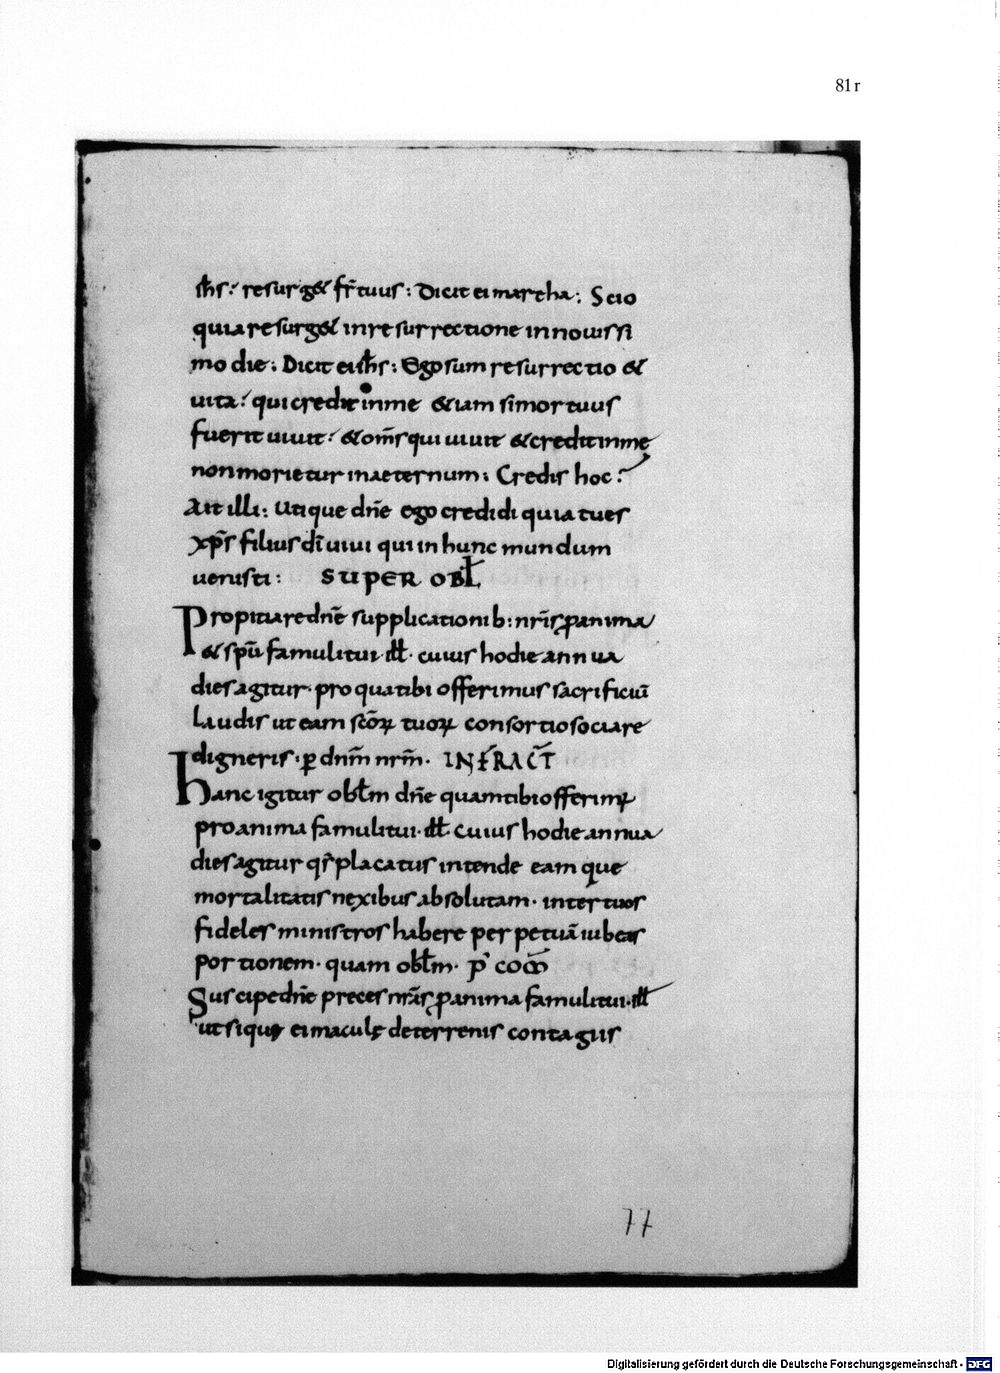 81r
ih̄s: resurg& fr̄ tuus: Dicit ei martha: Scio
quia resurg& in resurrectione in nouissi
mo die: Dicit ei ih̄s: Ego sum resurrectio &
uita: qui credit in me &iam si mortuus
fuerit uiuit: & om̄s qui uiuit & credit in me
non morietur in aeternum: Credis hoc?
Ait illi: Utique dn̄e ego credidi quia tu es
xp̄s filius dī uiui qui in hunc mundum
uenisti: SUPER OBL̄
Propitiare dn̄e supplicationib: nr̄is ꝓ anima
& spū famuli tui ill̄. cuius hodie annua
dies agitur. pro qua tibi offerimus sacrificiū
laudis ut eam sc̄oꝝ tuoꝝ consortio sociare
digneris. ꝑ dnm̄ nrm̄. INFRA C̄T
Hanc igitur obl̄m dn̄e quam tibi offerimꝰ
pro anima famuli tui. ill̄. cuius hodie annua
dies agitur qs̄ placatus intende eamque
mortalitatis nexibus absolutam. inter tuos
fideles ministros habere perpetuā iubeas
portionem. quam obl̄m. p' cōm
Suscipe dn̄e preces nr̄as ꝓ anima famuli tui. ill̄
ut si quę ei maculę de terrenis contagiis
77
Digitalisierung gefördert durch die Deutsche Forschungsgemeinschaft - DFG